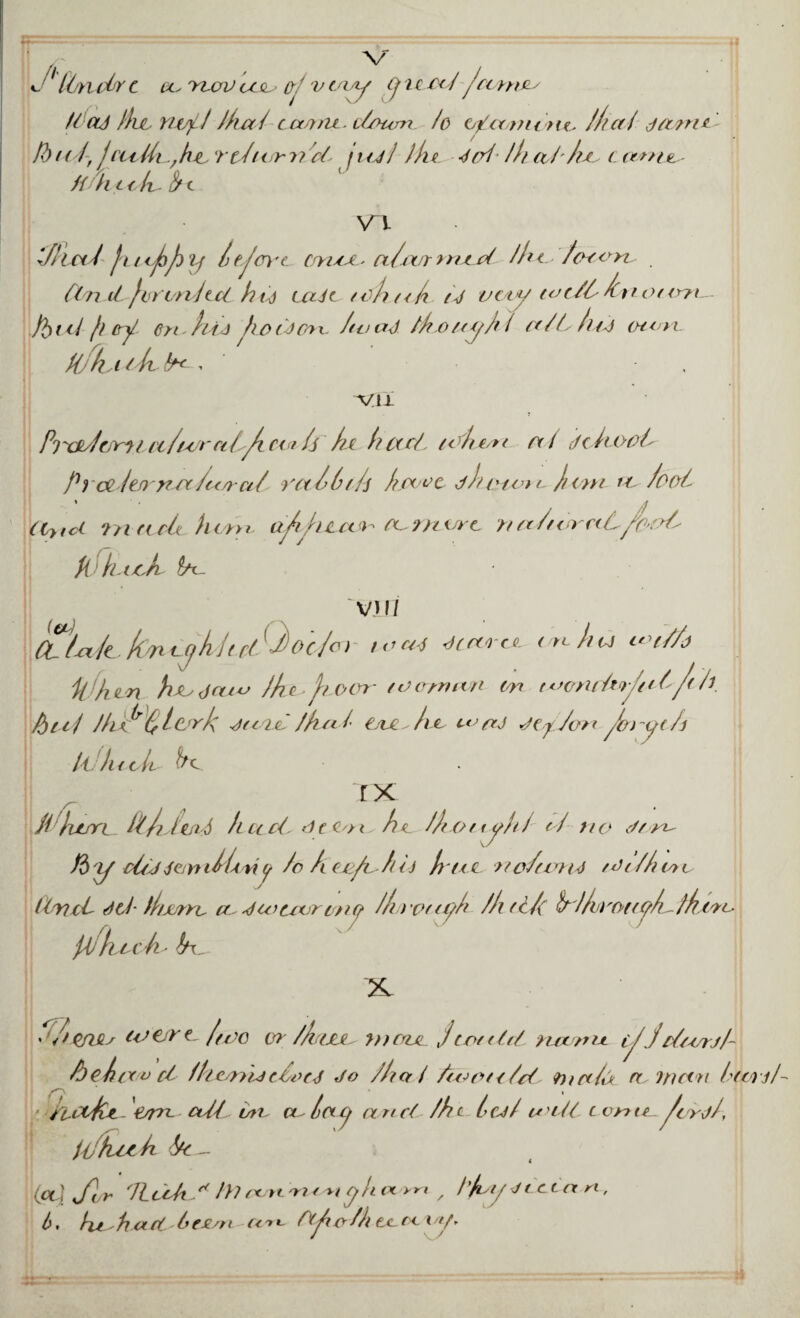 V
St Andrè a novice of very great fame
Was the next that came down to examine that same
But, faith, he return'd just the sot that he came
Which &c
VI
That puppy before once alarmed the town
And fronted his case which is very well known
But pox on his poison twas thought all his own
Which &c.
VII
Præternatural parts he had when at school
Præternatural rabbits have shown him a tool
And made him appear a mere natural fool
Which &c
VIII
(a)
A late Knighted Doctor was scarce in his witts
When he saw the poor woman in wonderful fits
But the Clerk said that eve he was sexton forgets
Which &c
IX
When Whites had seen he thought it no sin
By dissembling to keep his true notions within
And set them a swearing through thick & through thin
Which &c
X
There were two or three more I could name if I durst
behav'd themselves so that twould make a man burst
take 'em all in a bag and the best will come first,
Which &c
(a) Sir Richd Manningham, Physician,
b. he had been an Apothecary.